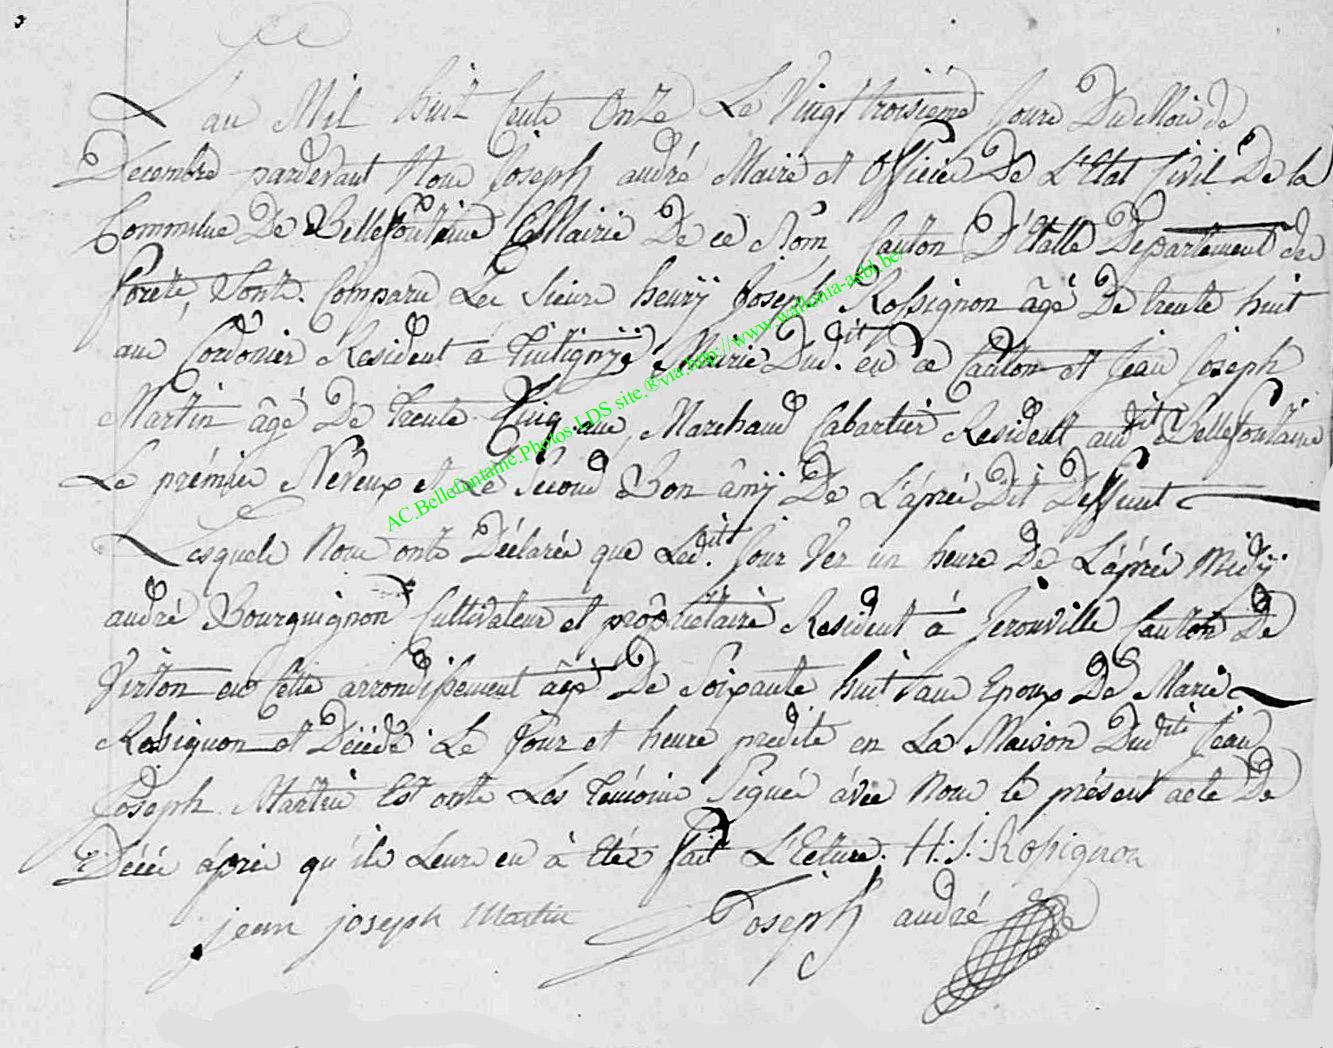 L'an Mil huit Cents Onze Le Vingt troisième Jours Du Mois de
Decembre pardevant Nous Joseph andré Maire et Officier De L'Etat Civil De la
Commune De Bellefontaine Mairie De ce Nom, Canton D'Etalle Departement des
Forêts, Sonts Comparu Les Sieurs henry Joseph Rossignon âgé De trente huit
ans Cordonier Resident à Tintigny Mairie Dud.it en ce Canton et Jean Joseph
Martin âgé De trente Cinq ans Marchand Cabartier Resident audit Bellefontaine
Le prémier Néveux et Le Second Bon âmÿ De L'âpréś Dit Deffunt
Lesquels Nous onts Déclarés que Led.its Jour Ver un heure De L'áprés Midÿ
andré Bourguignon Cultivateur et propriétaire Resident à Gerouville Canton De
Virton en Cette arrondissement âgé De Soixante huit ans Epoux De Marie
Rossignon et Décédé Le Jour et heure predite en La Maison Dudits Jean
Joseph Martin Est onts Les témoins Signés ávec Nous le présent acte De
Décés áprés qu'ils Leurs en à Etés fait L'Ecture. H: J: Rossignon
jean joseph Martin Joseph andré
AC.Bellefontaine.Photos.LDS site.®via.http://www.wallonia-asbl.be/